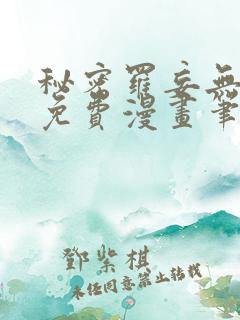 秘密罪妄無
免費漫畫筆
鄧紫棋
未经同意禁止转载